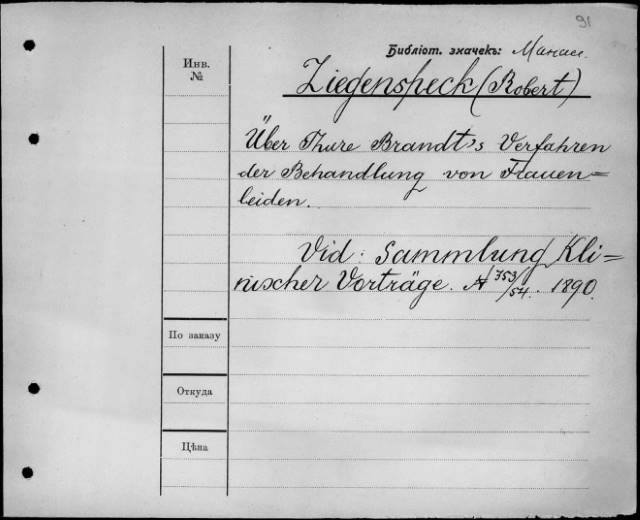 91
Библіот. значекъ:
Инв. №
Ziegenspeck (Robert)
Über Thure Brandt's Verfahren
der Behandlung von Frauen=
leiden.
Vid: Sammlung Kli=
nischer Vorträge. № 353/54. 1890.
По заказу
Откуда
Цѣна